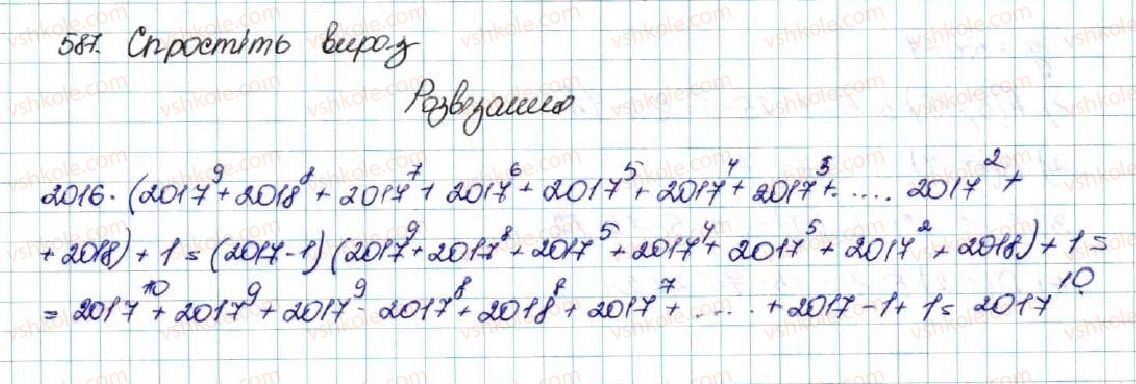 587. Спростіть вираз
Розвезання
2016·(2017⁹+2018⁸+2017⁷+2017⁶+2017⁵+2017⁴+2017³+....2017²+
+2018)+1=(2017-1)(2017⁹+2017⁸+2017⁵+2017⁴+2017⁵+2017²+2018)+1=
=2017¹⁰+2017⁹+2017⁹-2017⁸+2018⁸+2017⁷+.....+2017-1+1=2017¹⁰.